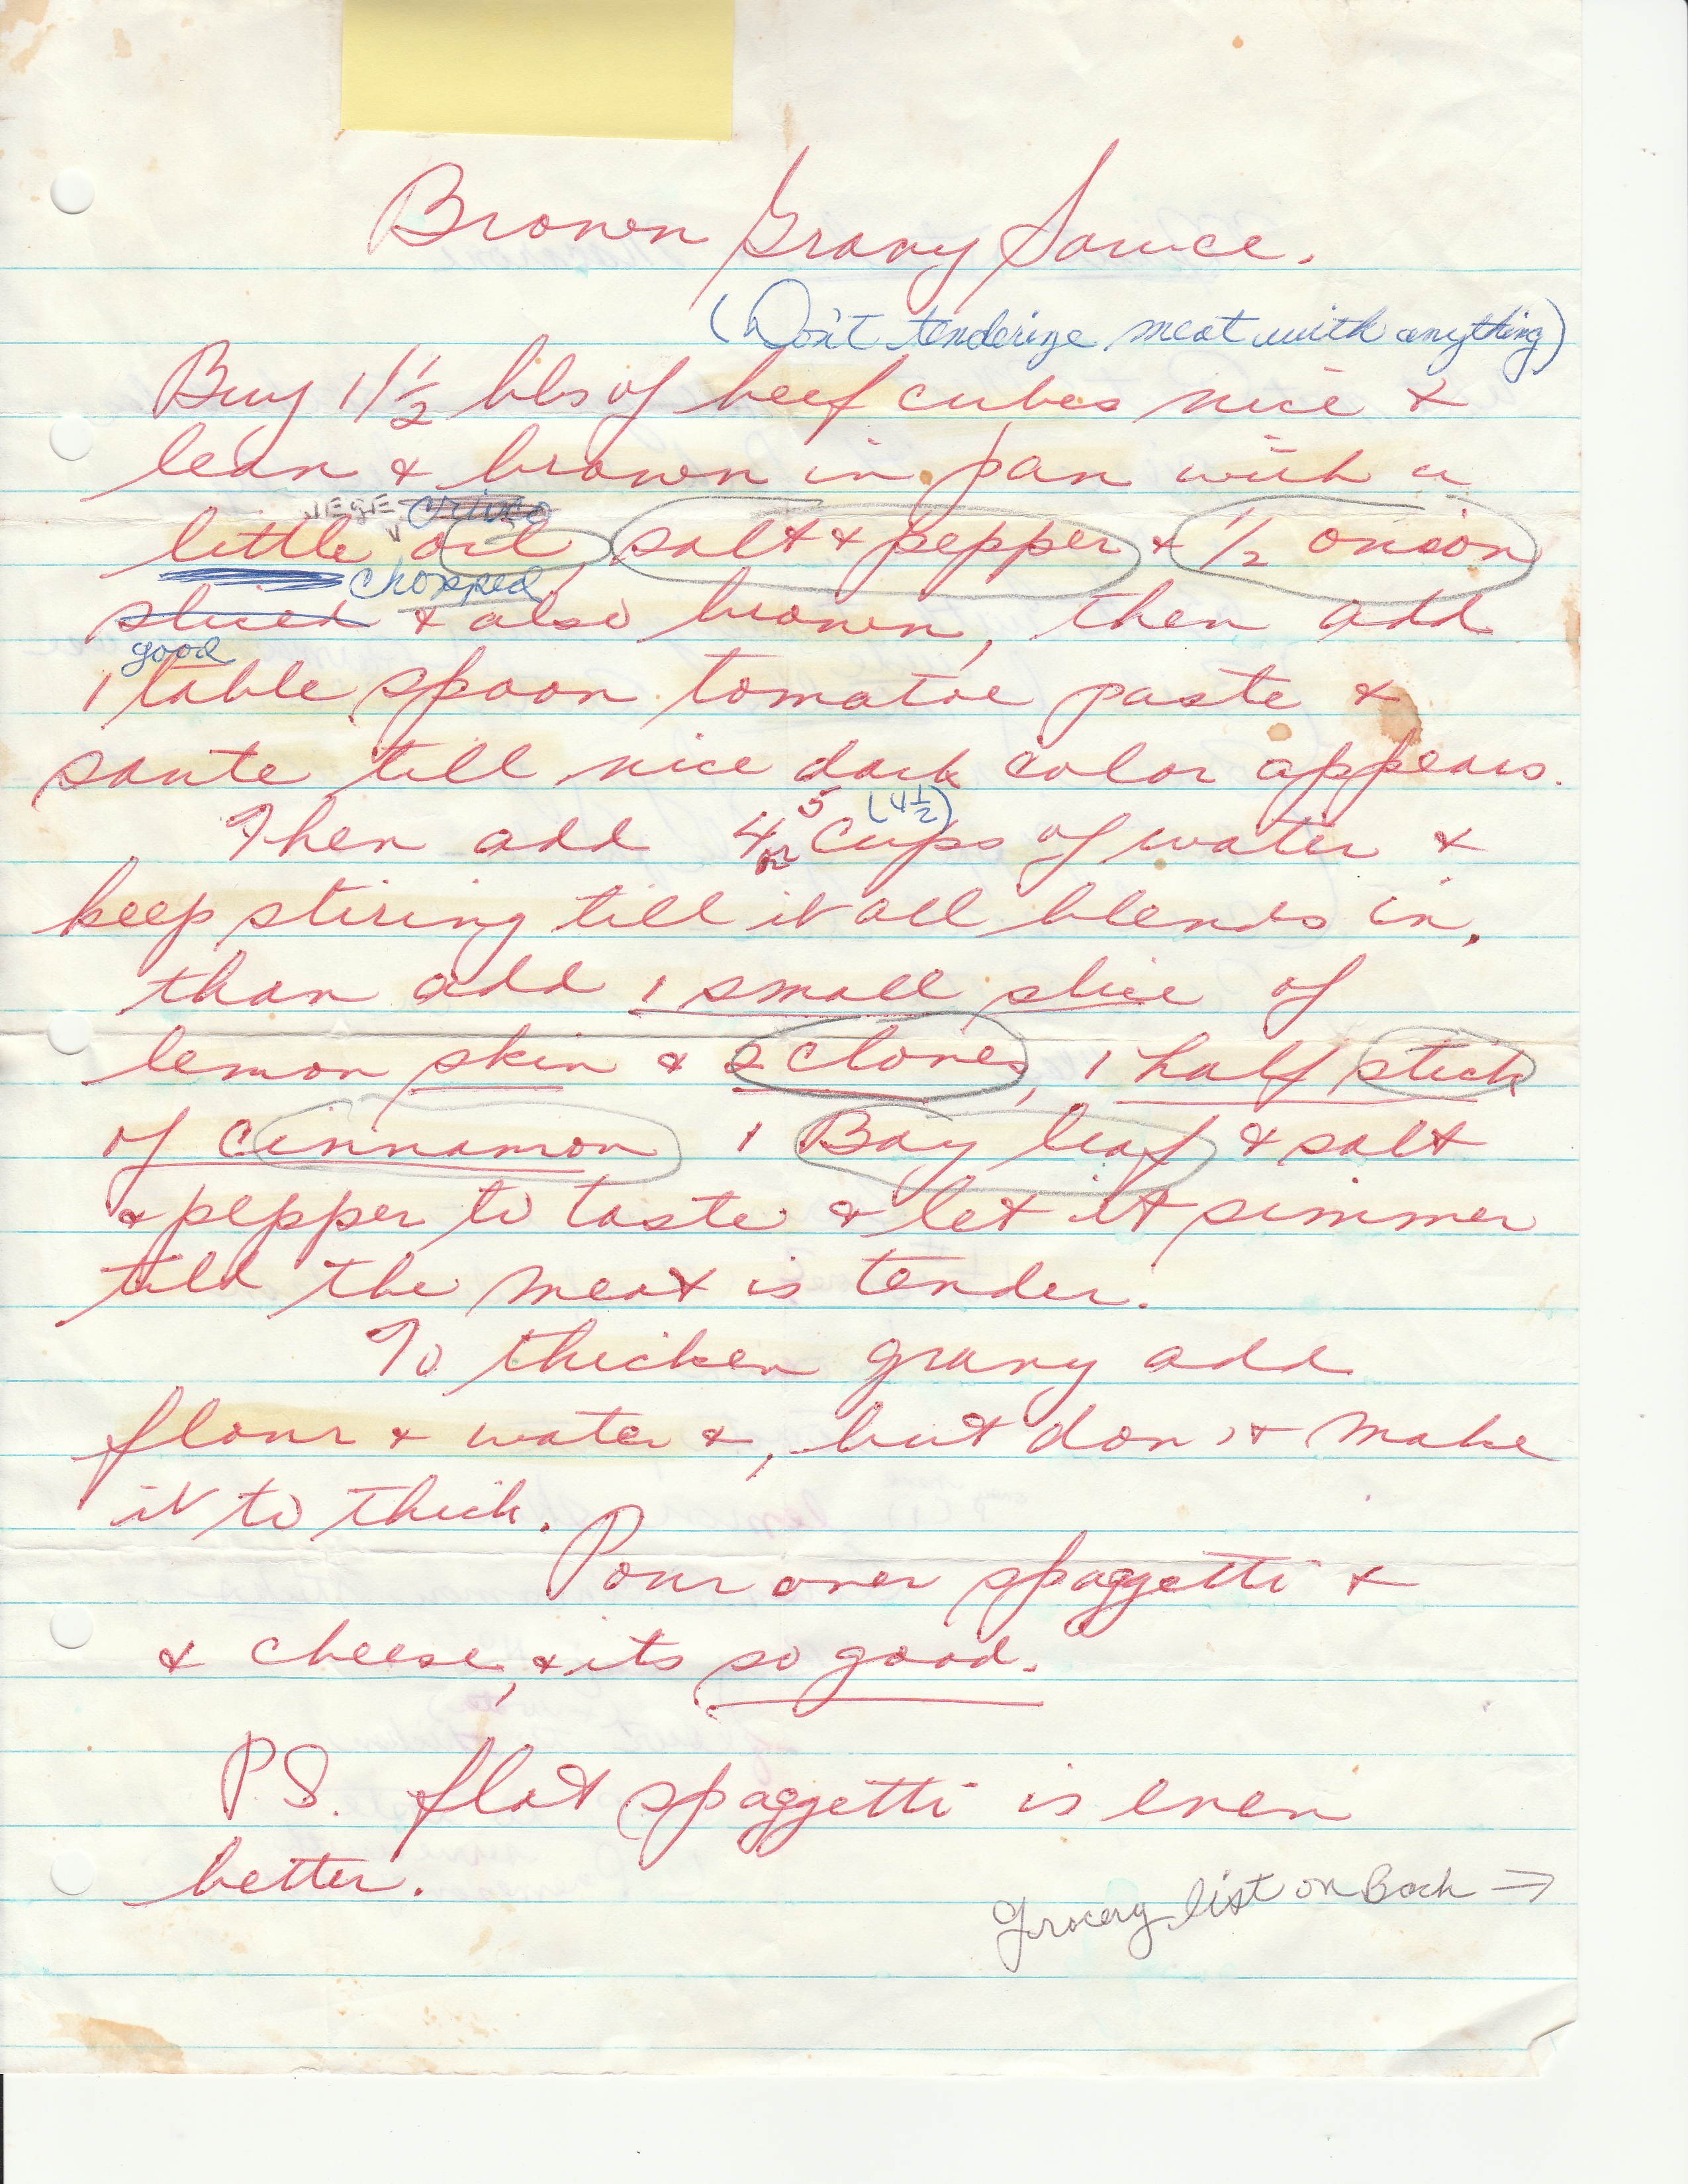 Brown Gravy Sauce.
(Don't tenderize meat with anything)
Buy 1 1/2 lbs of beef cubes nice &
lean & brown in pan with a
VEGE crisco
little oil, salt & pepper & 1/2 onion
chopped
sliced & also brown, then add
good
1 table spoon tomatoe paste &
saute till nice dark color appears.
Then add 4 or 5 cups (4 1/2) of water &
keep stiring till it all blends in,
than add 1 small slice of
lemon skin & 2 cloves, 1 half stick
of cinnamon 1 Bay leaf & salt
& pepper to taste & let it simmer
till the meat is tender.
To thicken gravy add
flour & water &, but don't make
it to thick.
Pour over spaggetti &
& cheese, & its so good.
P.S. flat spaggetti is even
better.
Grocery list on Back →